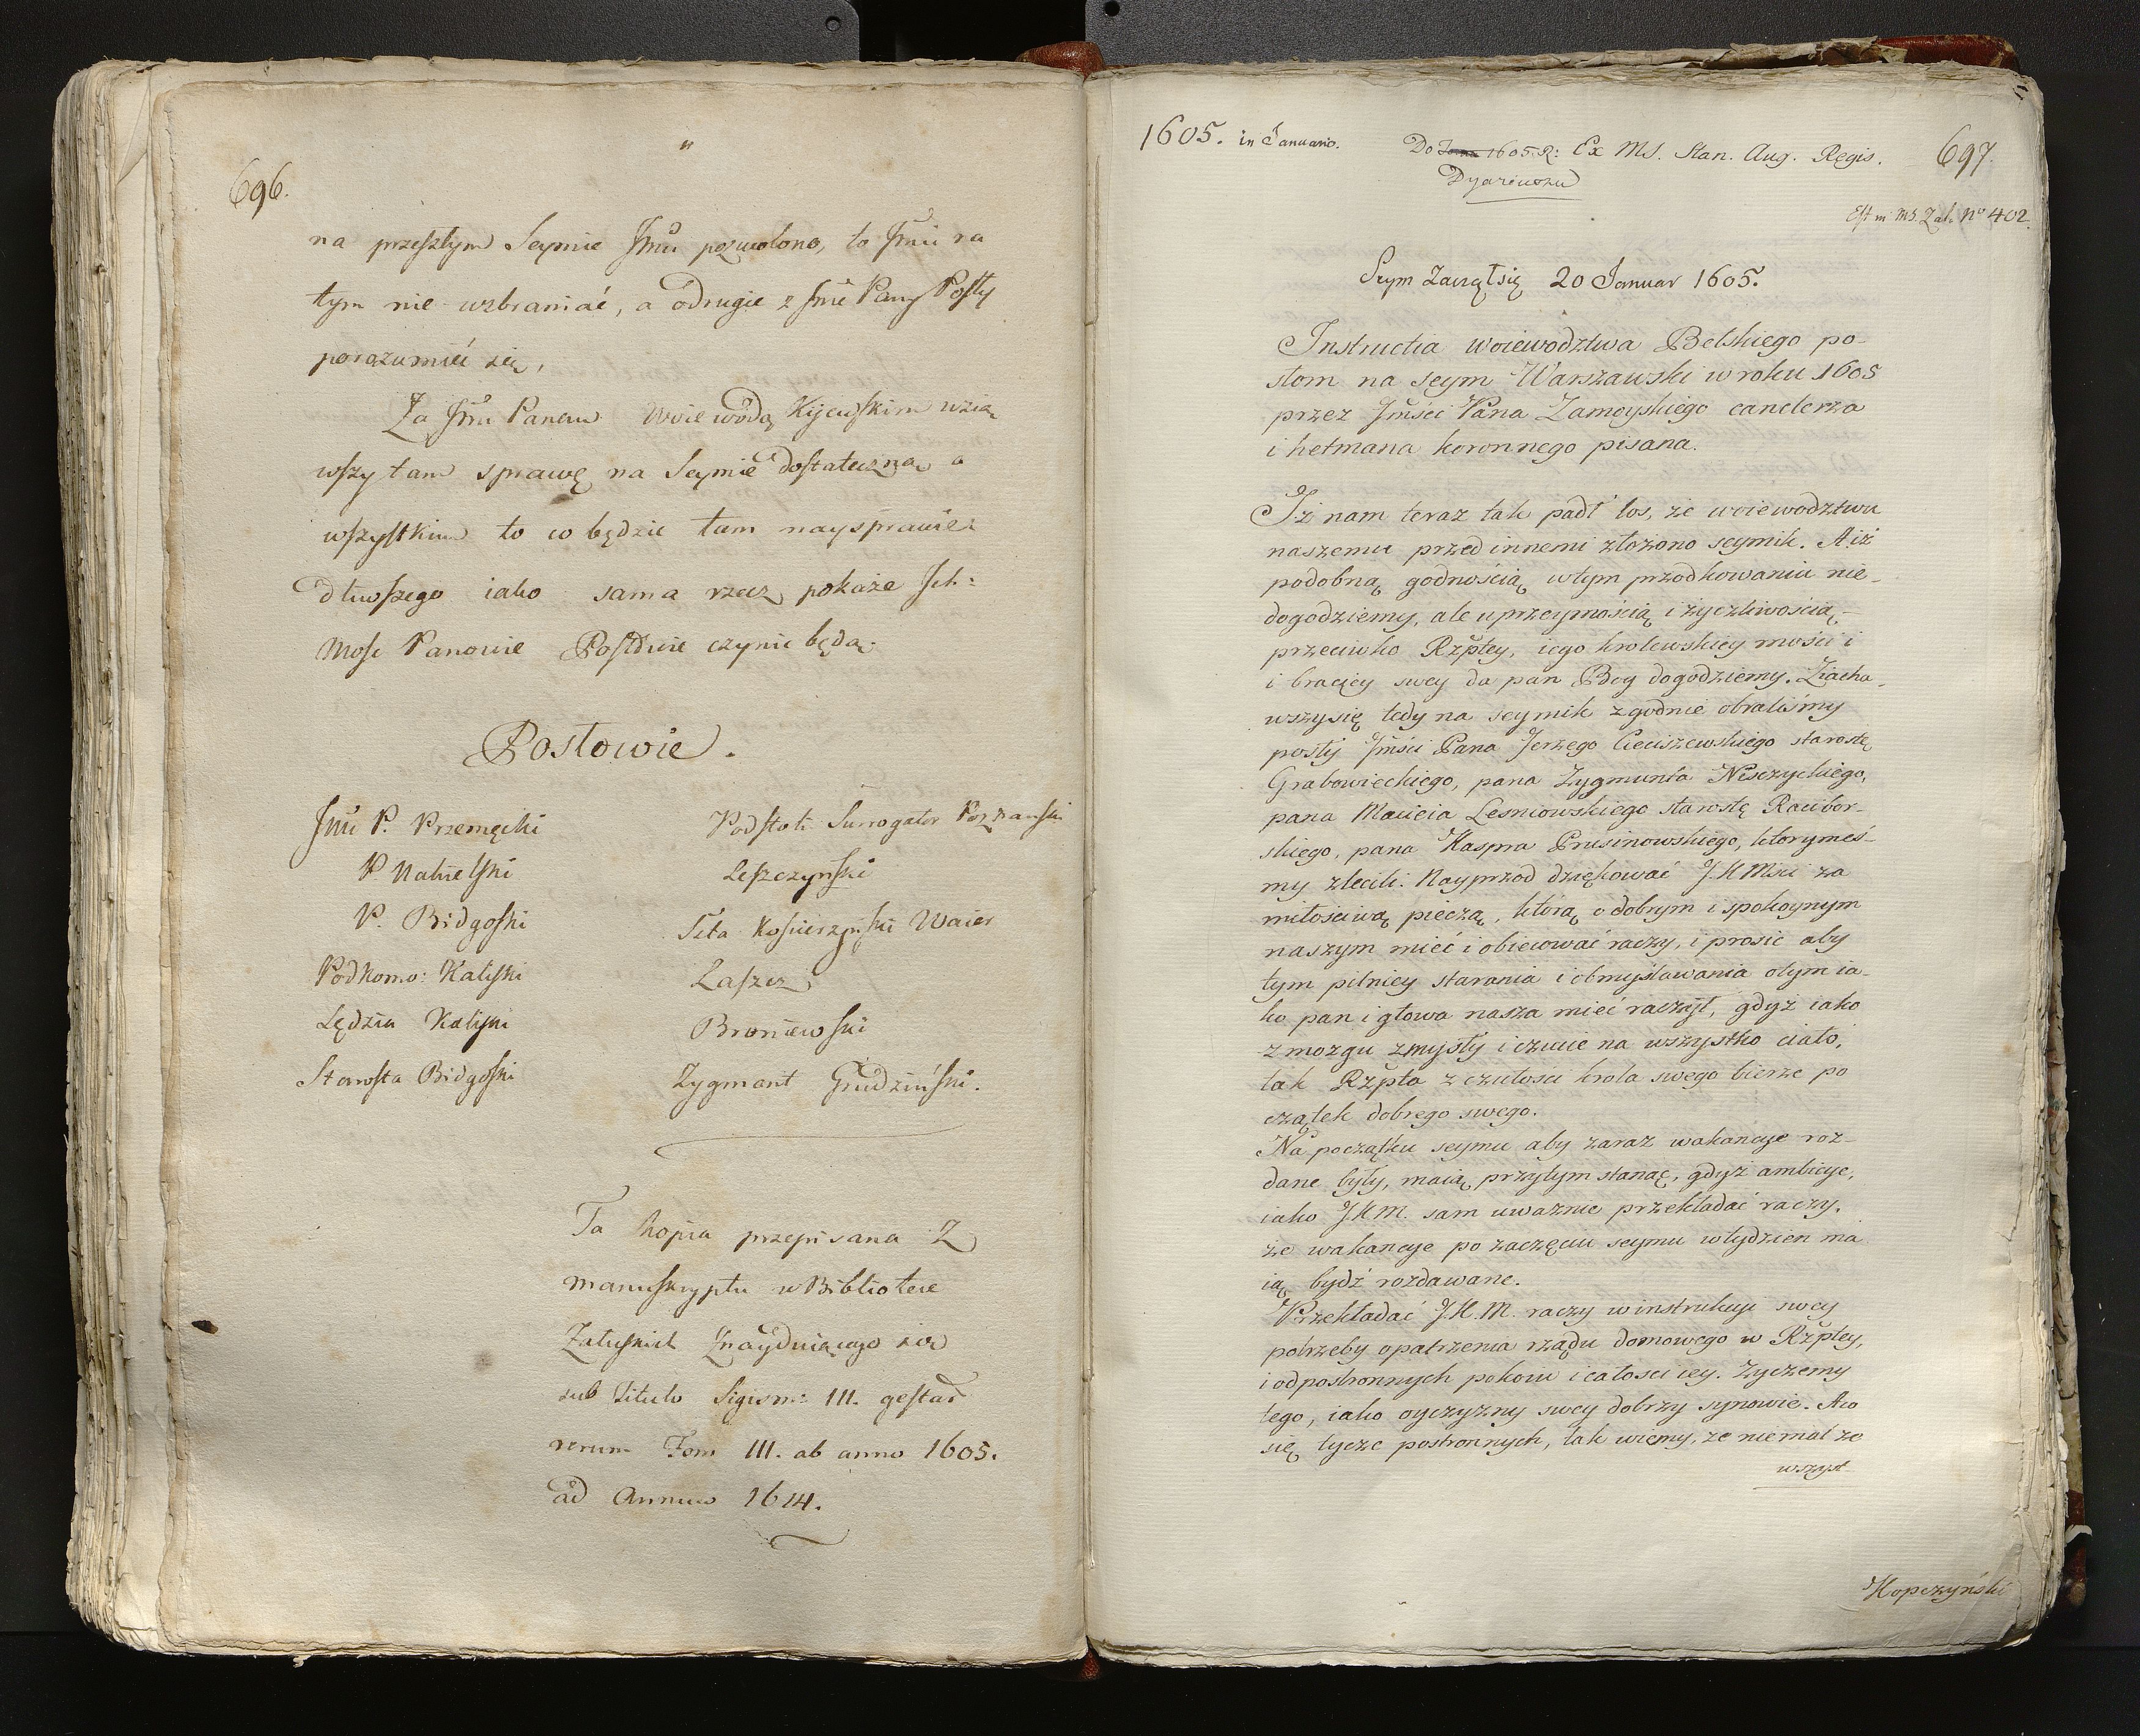 696.
na przeszłym Seymie Jmu pozwolono, to Jmu ra
tym nie wzbraniać, a odrugie z Jmi Pany Posły
porozumieć się,
Za Jmu Panem Woiewodą Kijewskim wzią
wszy tam sprawę na Seymie dostateczną a
wszystkim to co będzie tam naysprawie
dliwszego iako sama rzecz pokaże Ich:
Mość Panowie Posłowie czynić będą.
Posłowie.
Jmć P. Przemęcki
Podstoli Surrogator Poznański
P. Nakielski
Leszczyński
P. Bidgoski
Ssta Kościerzyński Waier
Podkomo: Kaliski
Laszcz
Sędzia Kaliski
Broniewski
Starosta Bidgoski
Zygmont Grudziński.
Ta kopia przepisana Z
Manuskryptu w Bibliotece
Załuskich Znayduiącego się
sub titulo Sigism: III. gestar
rerum Tom III. ab anno 1605.
ad Annum 1614.
1605. in Januario.
Do 1605. R: Ex MS. Stan. Aug. Regis.
697.
Dyariuszu
Est in MS. Zał. No 402.
Seym zaczął się 20 Januar 1605.
Instructia woiewodztwa Belskiego po-
słom na seym Warszawski w roku 1605
przez Jmści Pana Zamoyskiego canclerza
i hetmana koronnego pisana.
Iż nam teraz tak padł los, że woiewodztwu
naszemu przed innemi złożono seymik. A iż
podobną godnością wtym przodkowaniu nie-
dogodziemy, ale uprzeymością i życzliwością
przeciwko Rzptey, iego krolewskiey mości i
i braciey swey da pan Bog dogodziemy. Ziacha-
wszysię tedy na seymik zgodnie obraliśmy
posły Jmści Pana Jerzego Cieciszewskiego starostę
Grabowieckiego, pana Zygmunta Nisczyckiego,
pana Macieia Lesniowskiego starostę Racibor-
skiego, pana Kaspra Prusinowskiego, ktorymeś-
my zlecili. Nayprzod dziękować J.K Mści za
miłościwą pieczą, którą o dobrym i spokoynym
naszym mieć i obiecować raczy, i prosic aby
tym pilniey starania i obmyslawania otym ia-
ko pan i głowa nasza mieć raczył, gdyż iako
z mozgu zmysły i czucie na wszystko ciało,
tak Rzpta z czułości krola swego bierze po
czątek dobrego swego.
Na początku seymu aby zaraz wakancye roz-
dane były, maią przytym stanąć, gdyż ambicye,
iako J.K M. sam uważnie przekładać raczy,
że wakancye po zaczęciu seymu wtydzien ma
ią bydź rozdawane.
Przekładać J.K.M. raczy w instrukcyi swey
potrzeby opatrzenia rządu domowego w Rzptey,
i od postronnych pokoiu i całosci iey. Zyczemy
tego, iako oyczyzny swey dobrzy synowie. A co
się tycze postronnych, tak wiemy, ze niemal ze
wszyst-
Kopczyński